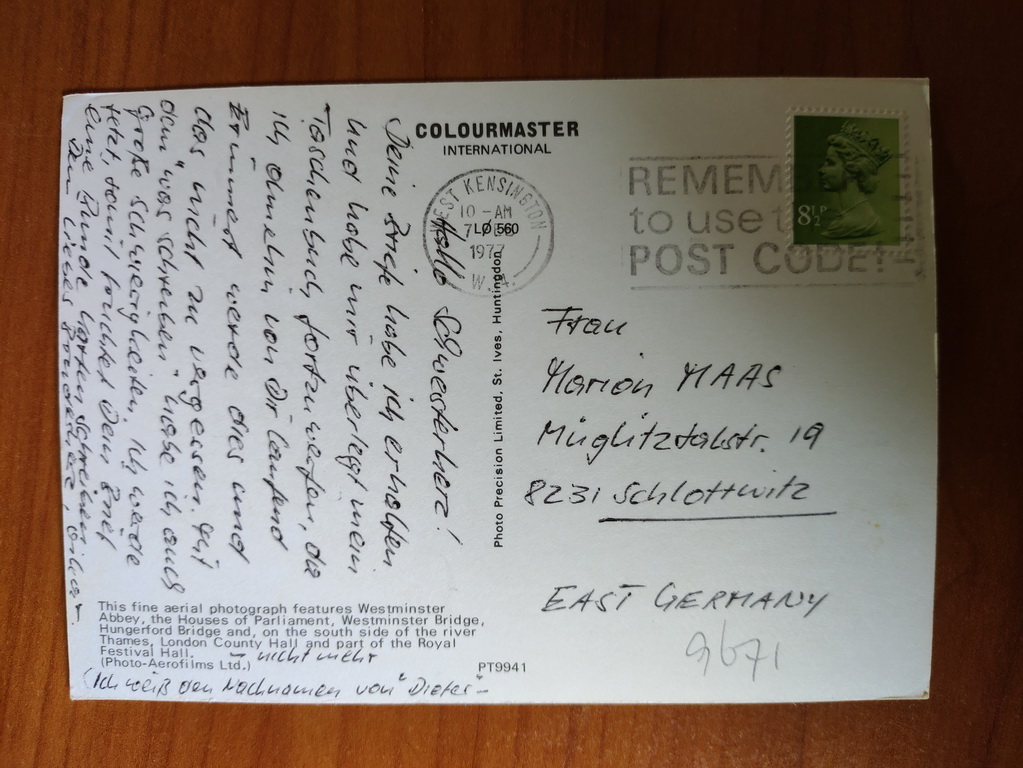 COLOURMASTER
INTERNATIONAL
WEST KENSINGTON
10 - AM
7
1977
W.
LØ 560
REMEM
to use t
POST CODE
8½P
Hallo Schwesterherz!
Deine Briefe habe ich erhalten
und habe mir überlegt mein
Taschenbuch fortzuwerfen, da
ich ohnehin von Dir laufend
Erinnert werde dies und
das "nicht zu vergessen". Mit
dem "was schreiben" habe ich auch
Große Schwierigkeiten. Ich werde
jetzt, somit Dein Brief
eine Runde Karten schreiben.
Dein liebes Bruderherz,
Photo Precision Limited, St. Ives, Huntingdon
Frau
Marion MAAS
Müglitztalstr. 19
8231 Schlottwitz
EAST GERMANY
9671
This fine aerial photograph features Westminster
Abbey, the Houses of Parliament, Westminster Bridge,
Hungerford Bridge and, on the south side of the river
Thames, London County Hall and part of the Royal
Festival Hall.
(Photo-Aerofilms Ltd.)
PT9941
- nicht mehr
(Ich weiß den Nachnamen von "Dieter" -